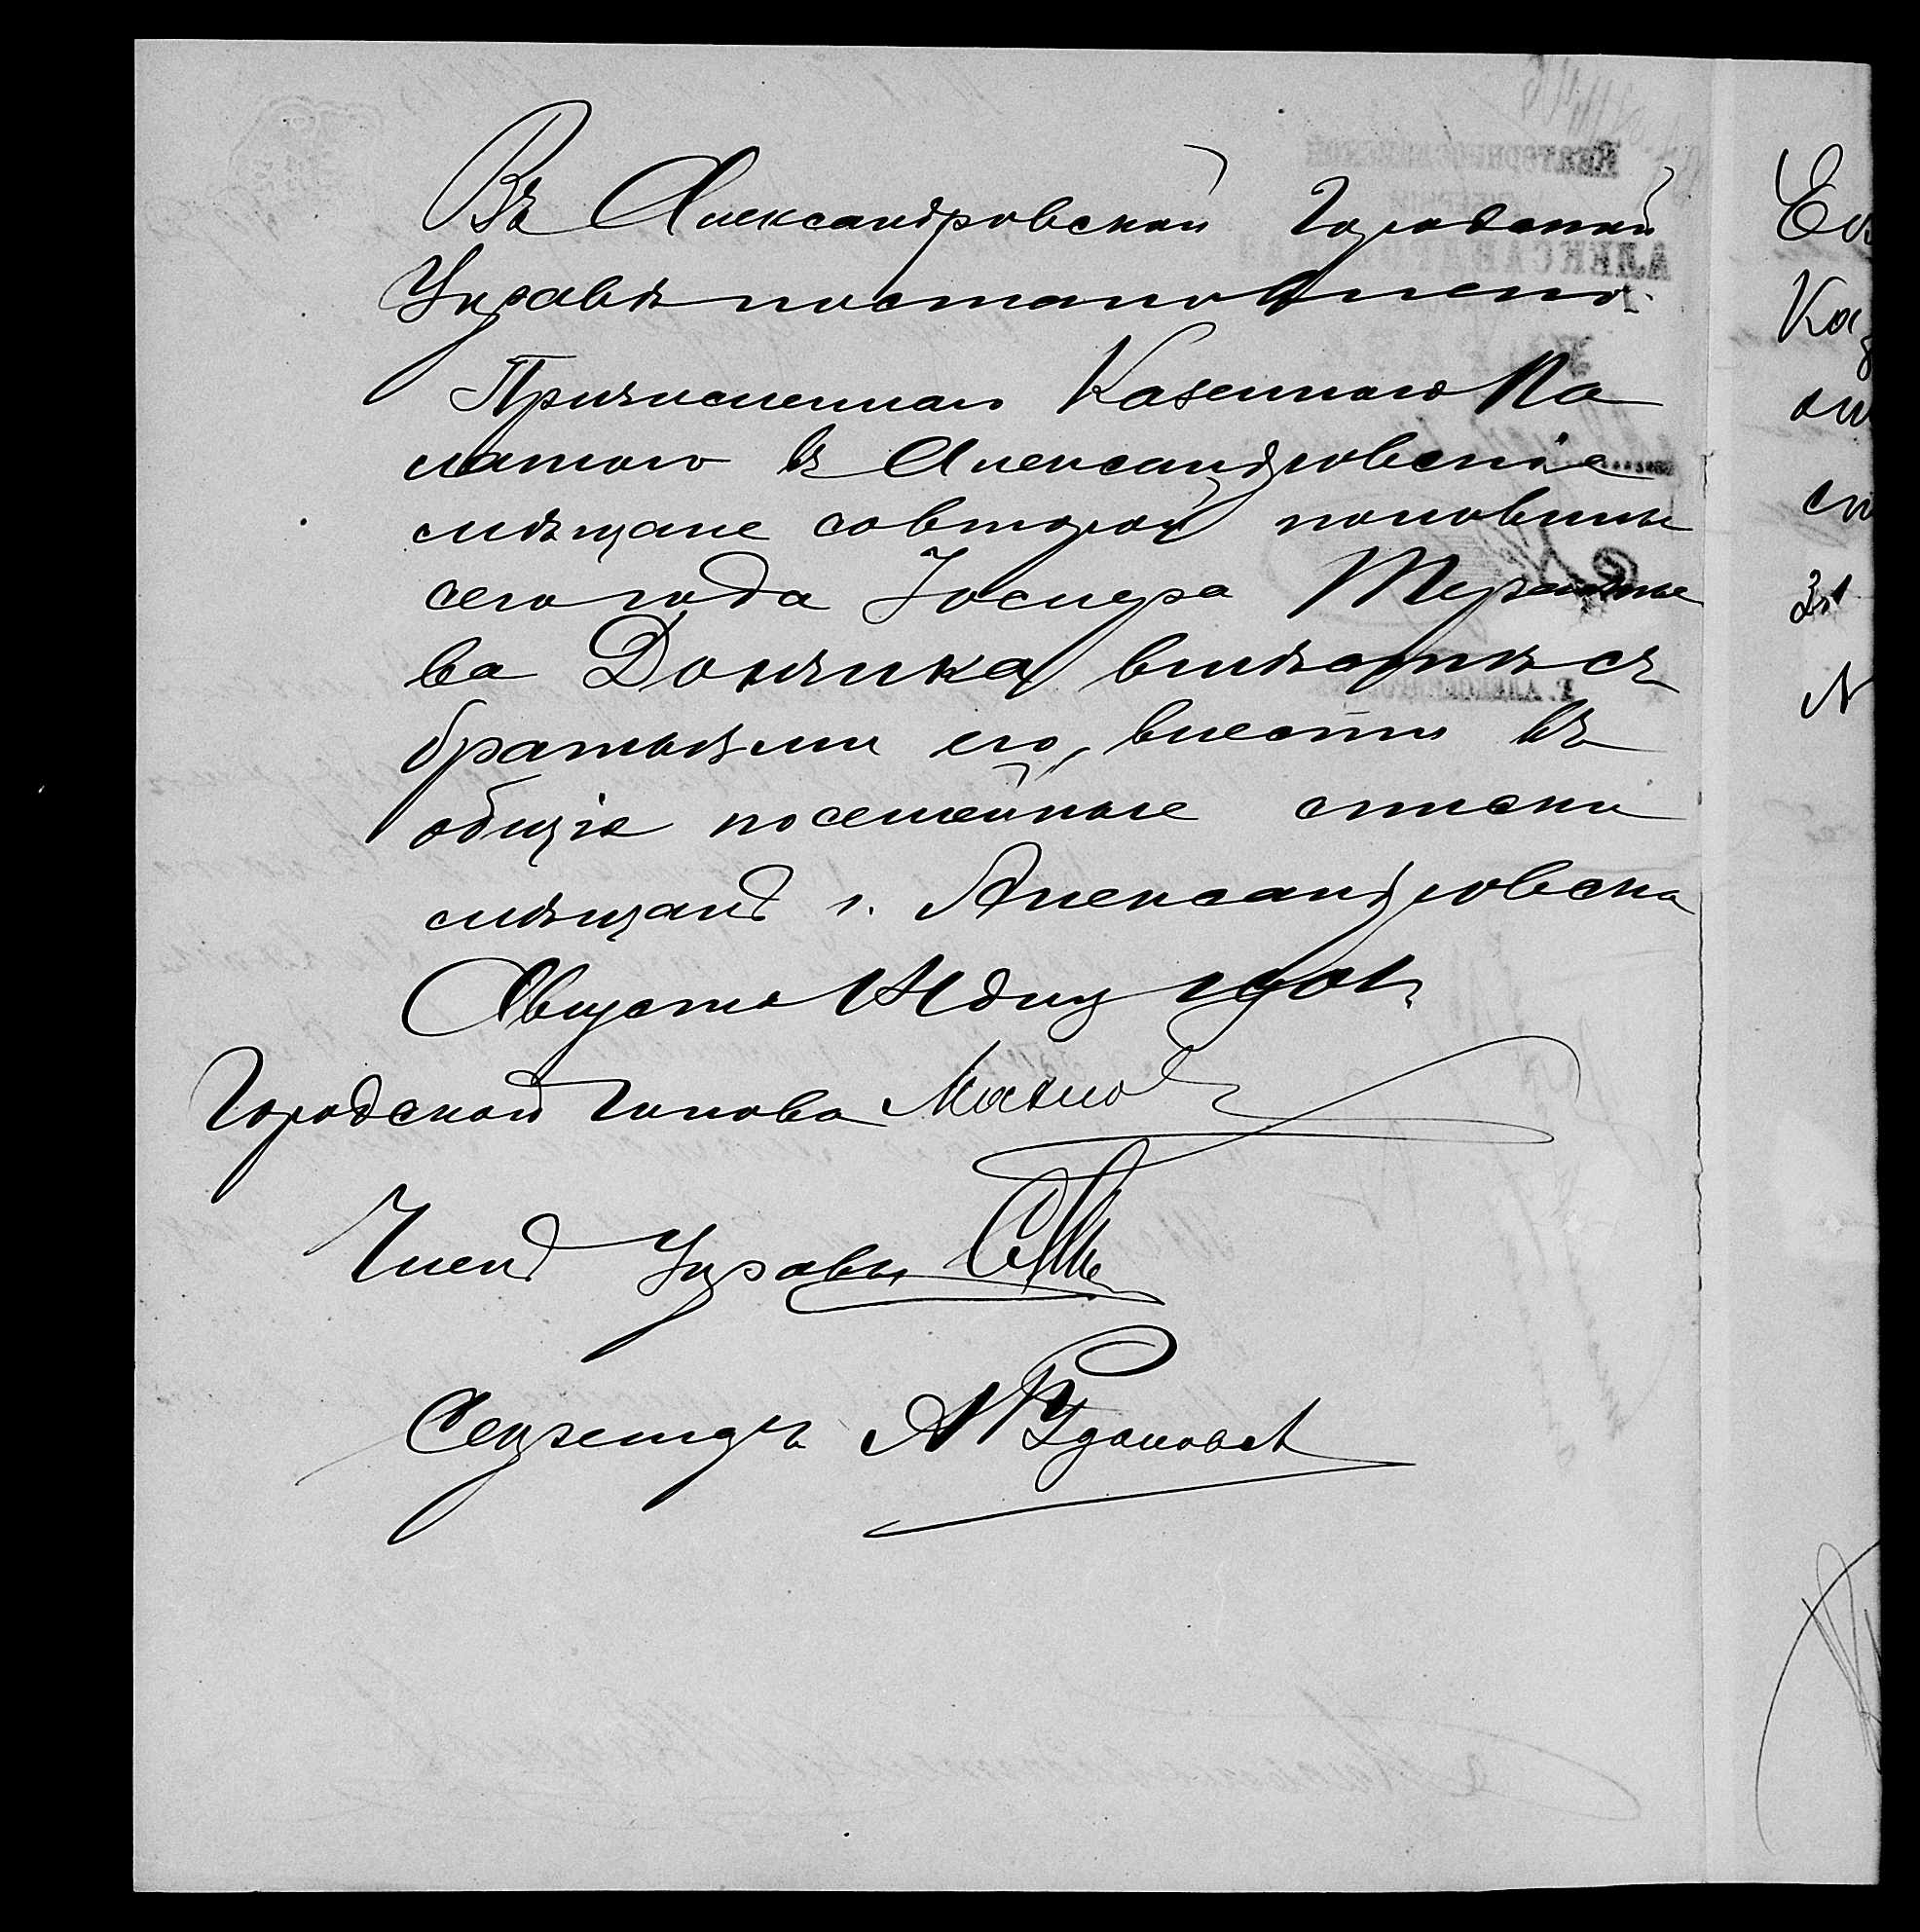 Въ Александровской Городской
Управѣ постановлено:
Причисленнаго Казенною Па
латою въ Александровскіе
мѣщане со второй половины
сего года Іосифа Терентье
ва Донника, вмѣстѣ съ
братьями его, внести въ
общіе посемейные списки
мѣщанъ г. Александровска
Августа 14 дня 1901 г.
Городской Голова
Членъ Управы
Секретарь А